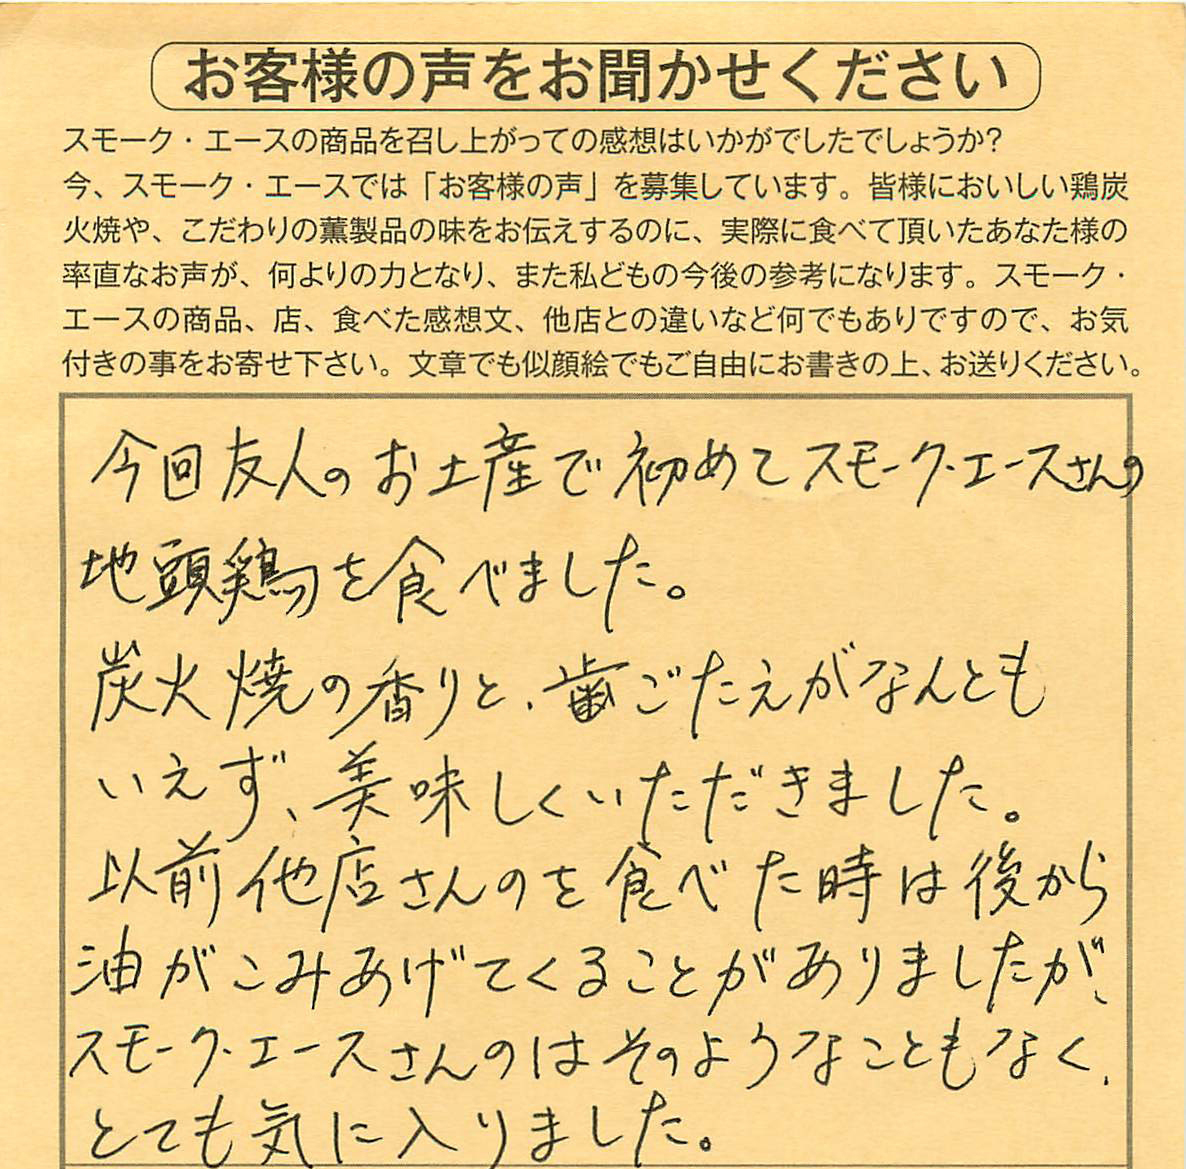 お客様の声をお聞かせください
スモーク・エースの商品を召し上がっての感想はいかがでしたでしょうか？
今、スモーク・エースでは「お客様の声」を募集しています。皆様においしい鶏炭
火焼や、こだわりの薫製品の味をお伝えするのに、実際に食べて頂いたあなた様の
率直なお声が、何よりの力となり、また私どもの今後の参考になります。スモーク・
エースの商品、店、食べた感想文、他店との違いなど何でもありですので、お気
付きの事をお寄せ下さい。文章でも似顔絵でもご自由にお書きの上、お送りください。
今回友人のお土産で初めてスモーク・エースさんの
地頭鶏を食べました。
炭火焼の香りと、歯ごたえがなんとも
いえず、美味しくいただきました。
以前他店さんのを食べた時は後から
油がこみあげてくることがありましたが、
スモーク・エースさんのはそのようなこともなく、
とても気に入りました。